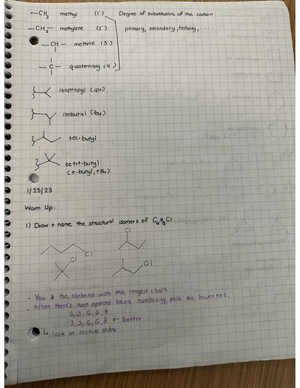 —CH₃ methyl (1°) Degree of substitution of the carbon
—CH₂— methylene (2°) primary, secondary, tertiary, ...
—CH— methine (3°)
—C— quaternary (4°)
isopropyl (ipr)
isobutyl (ibu)
sec-butyl
tert-butyl
(t-butyl, tBu)
1/23/23
Warm Up:
1) Draw + name the structural isomers of C₄H₉Cl
Cl
Cl
Cl
Cl
- You # the carbons with the longest chain
- When there's two options before numbering, pick the lowest
3, 3,
3, 3, better
↳ look at lecture slides